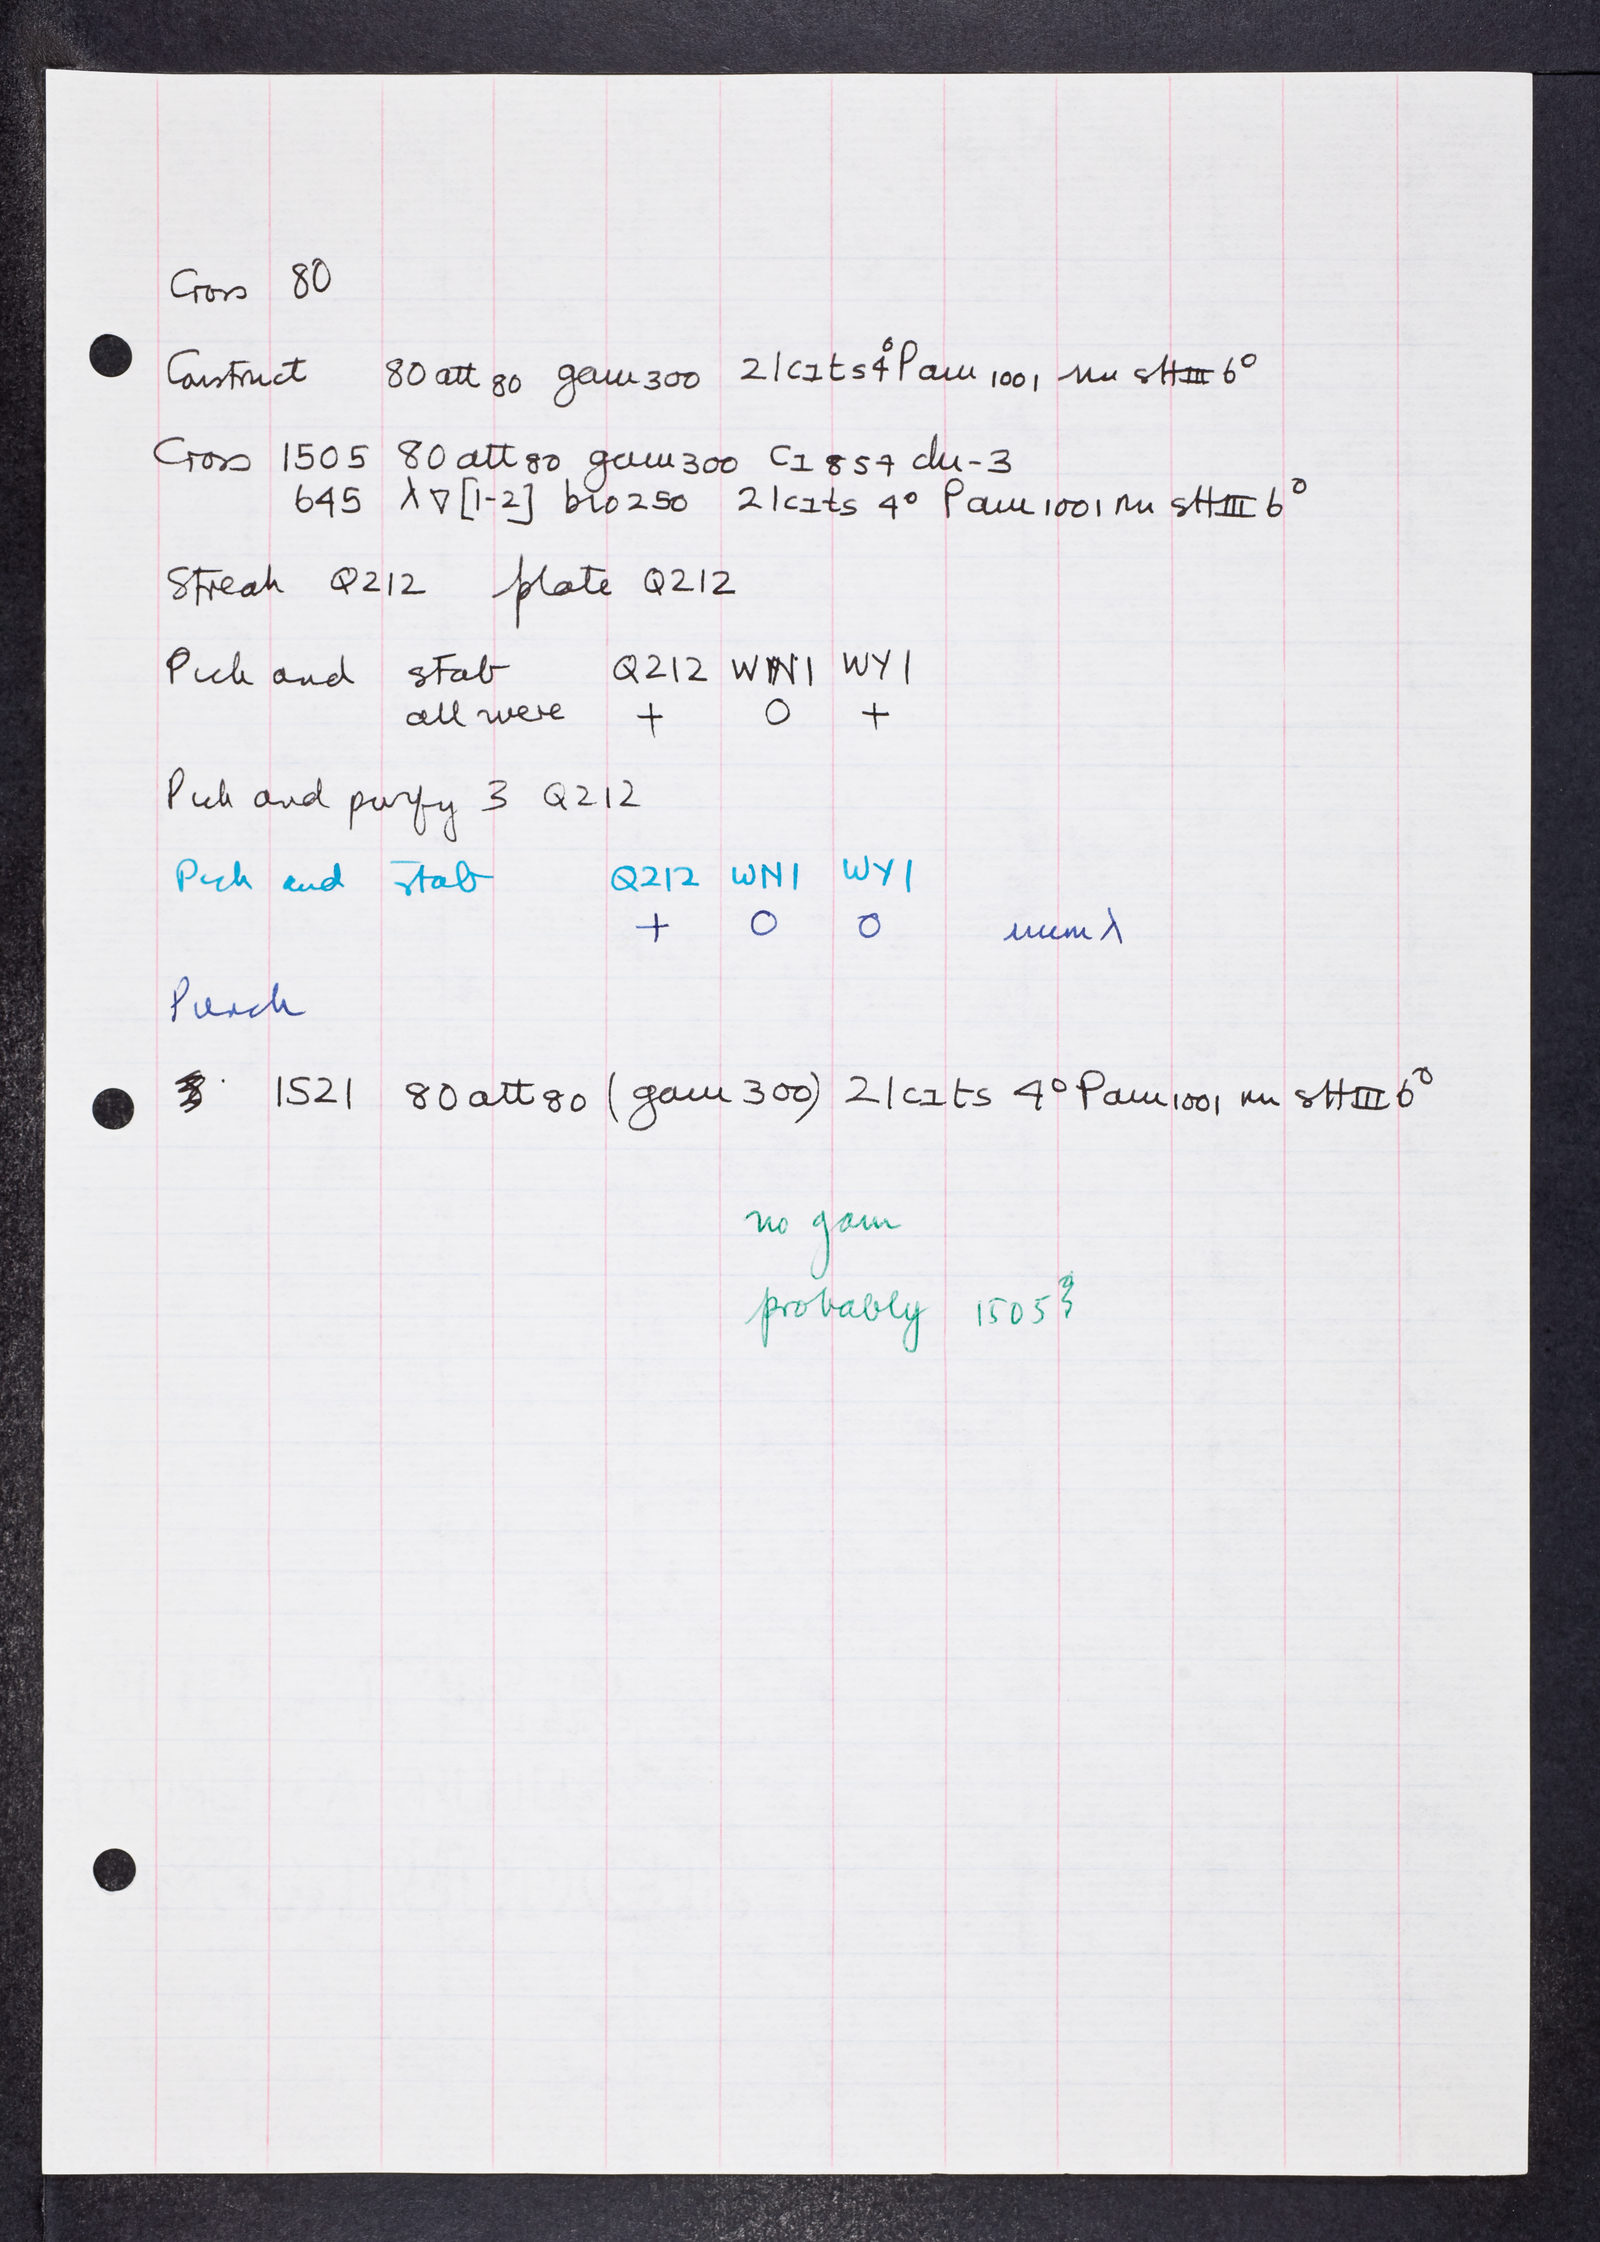 Cross 80
Construct 80 att 80 gam 300 21 cIts 4° Pam 1001 nin sHIII 6°
Cross 1505 80 att 80 gam 300 cI 857 chi-3
645 λ∇[1-2] bio 250 21 cIts 4° Pam 1001 nin sHIII 6°
Streak Q212 plate Q212
Pick and stab Q212 WN1 WY1
all were + O +
Pick and purify 3 Q212
Pick and stab Q212 WN1 WY1
+ O O imm λ
Preach
1521 80 att 80 (gam 300) 21 cIts 4° Pam 1001 nin sHIII 6°
no gam
probably 1505